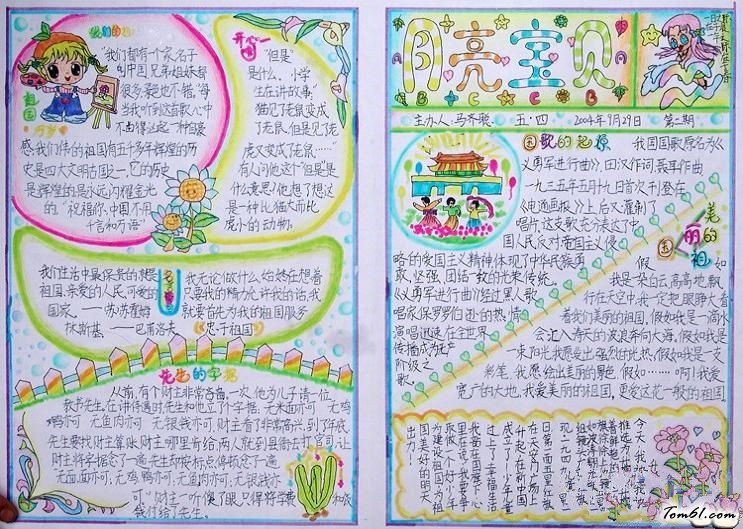 我们的祖国
"我们都有个家,名子
叫中国,兄弟姐妹都
很多,景也不错,"每
当我听到这首歌,心中
不由得生起一种自豪
感,我们伟的祖国有五千多年辉煌的历
史,是四大文明古国之一,它的历史
是辉煌的,是永远闪耀金光
的,"祝福你,中国,不用
千言和万语"
祖国
万岁
开心一
"但是"
是什么,小学
生在讲故事
猫见了老鼠变成
了老鼠,但是见了老
虎又变成了老鼠……
有人问他这个"但是"是
什么意思?他想了想:这
是一种比猫大而比
虎小的动物
我们生活中最保贵的就是
祖国,亲爱的人民,可爱的
国家。——苏·苏霍姆
林斯基
我无论做什么,始终在想着
只要我的精力允许我的话,我
就要首先为我的祖国服务
——巴甫洛夫《忠于祖国》
先生的字据
从前,有个财主非常吝啬,一次,他为儿子请一位
教书先生,在讲待遇时,先生和他立了个字据:无米面亦可 无鸡
鸭亦可 无鱼肉亦可 无银钱亦可,财主看了非常高兴,到了年底,
先生要找财主算账,财主哪里肯给,两人就到县衙去打官司,让
财主将字据念了一遍,先生却按标点停顿念了一遍:
无面,面亦可;无鸡,鸭亦可;无鱼,肉亦可;无银,钱亦
可。"财主一听傻了眼,只得将字据和
钱付给了先生。
月亮宝贝
A B C A B C
主办人:马齐骏 五·四 2004年9月29日 第二期
国歌的起源
我国国歌原名为《
义勇军进行曲》,田汉作词,聂耳作曲
一九三五年五月十九日首次刊登在
《电通画报》上,后又灌制了
唱片,这支歌充分表达了中
国人民反对帝国主义侵
略的爱国主义精神,体现了中华民族勇
敢,坚强,团结一致的光荣传统。
《义勇军进行曲》经过黑人歌
唱家保罗罗伯逊的热情
演唱迅速在全世界
传播成为无产
阶级之
歌。
美丽的祖国
假如
我是朵白云,高高地飘
行在天空中,我一定把眼睁大看
着我们美丽的祖国,假如我是一滴水
会汇入涛天的波浪奔向大海,假如我是一
束阳光我愿发出强烈的光热,假如我是一支
彩笔,我愿绘出美丽的景色,假如……啊!我爱
宽广的大地,我爱美丽的祖国,更爱这花一般的祖国
今天,我
一九四九
日第一面五星红旗
在天安门广场
升起,在新中国
成立了,少年儿童
过上了幸福生活
为建设祖国
国美好的明天
出力!
Tom61.com